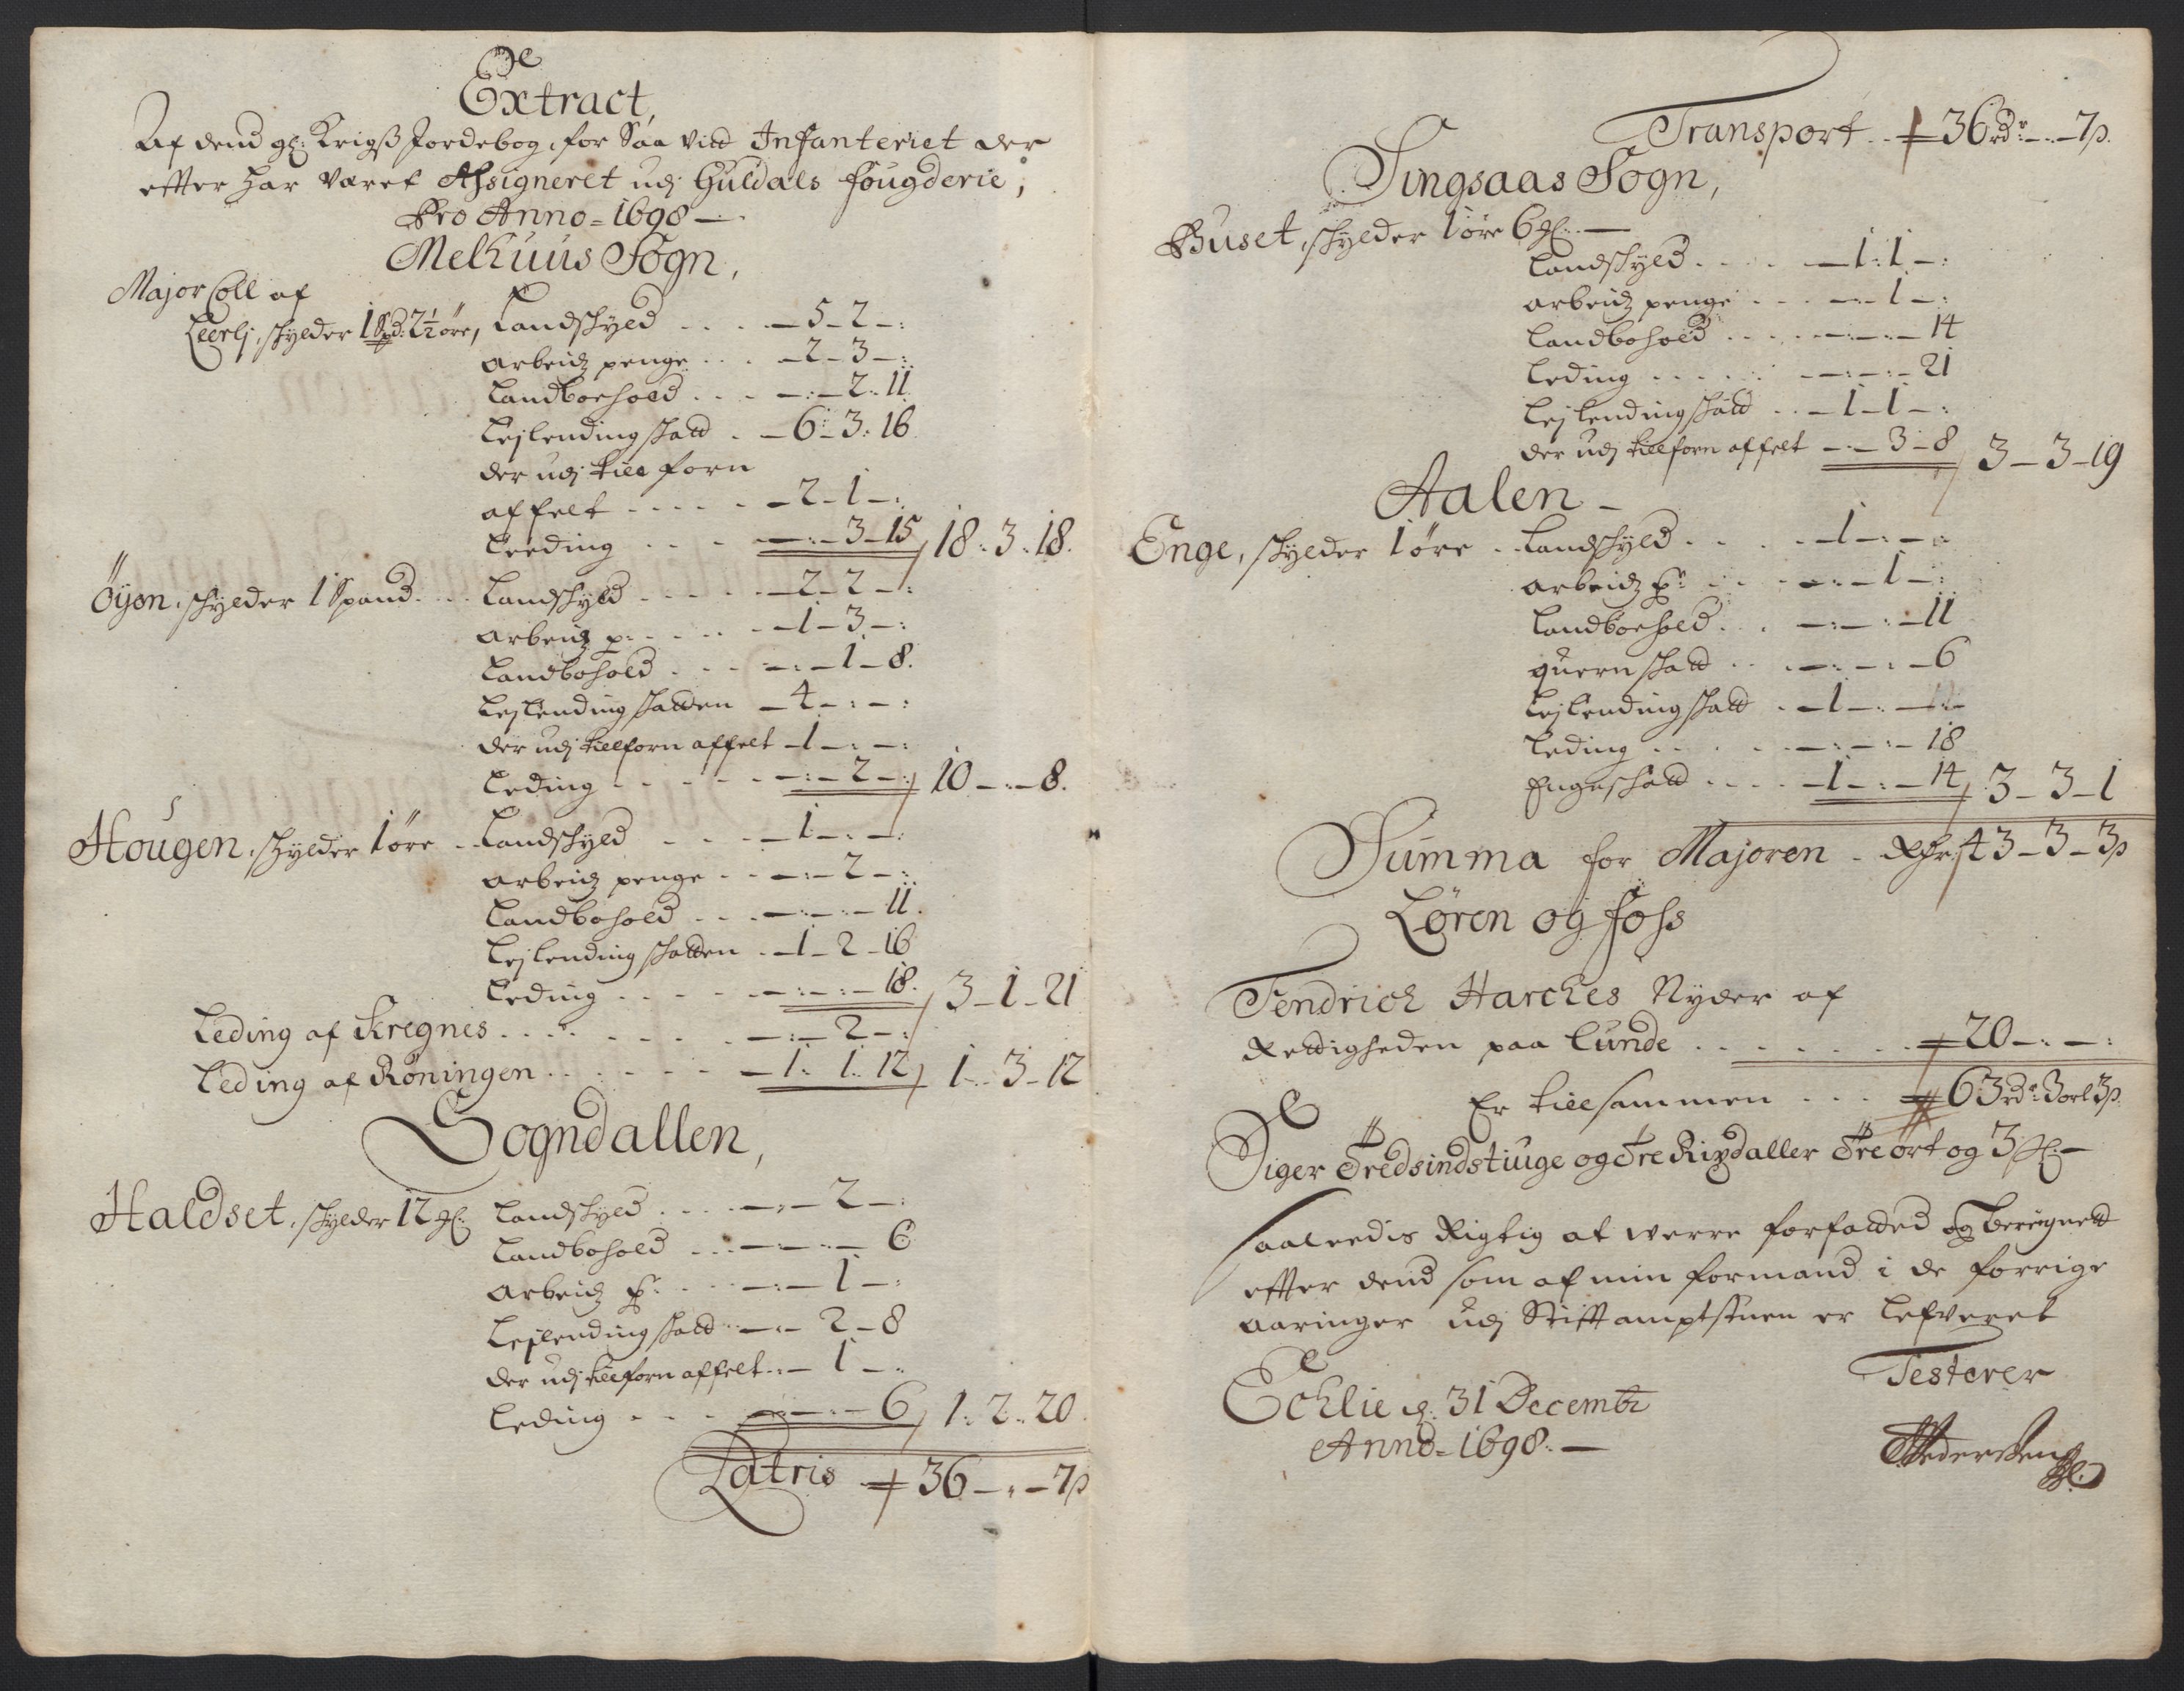 Extract,
Af dend gl: Krigs Jordebog, for Saa vitt Infanteriet der
effter har været Assigneret udj Guldals fougderie,
Pro Anno = 1698 —
Melhuus Sogn,
Major Coll af
Leerlj, skylder 1 Spd: 2½ øre, Landskyld . . . . — 5 - 2 — :
Arbeidz penge . . . — 2 - 3 — :
Landboehold . . . — : — 2 - 11
Lejlending skatt . — 6 : 3 : 16
der udj till forn
affelt . . . . . — 2 - 1 — :
Leeding . . . — : — 3 - 15 / 18 : 3 : 18.
Öyen, skylder 1 Spand . . Landskyld . . . . . — 2 - 2 — :
Arbeidz p: . . . . — 1 - 3 — :
Landbohold . . . — : — 1 - 8.
Lejlending skatten — 4 — : — :
der udj tillforn affelt — 1 — : — :
Leding . . . . . — : — 2 — : / 10 — : — 8.
Hougen, skylder 1 øre . Landskyld . . . — 1 — : — :
Arbeidz penge . . — : — 2 — :
Landbohold . . . — : — : — 11.
Lejlending skatten . — 1 - 2 - 16
Leding . . . . . — : — : — 18. / 3 - 1 - 21
Leding af Kregnes . . . . . . . . — : — 2 — :
Leding af Röningen . . . . . . — 1 : 1 : 12 / 1 : 3 - 12
Sogndallen,
Haldset, skylder 12 gl: Landskyld . . . . — : — 2 — :
Landbohold . . — : — : — 6
Arbeidz p: . . . — : — 1 — :
Lejlending skatt — : — 2 - 8
der udj tillforn affelt : — 1 — :
Leding . . . . — : — : — 6 / 1 : 2 : 20.
Latris 36 — : — 7 s
Transport . . 36 rdr : — 7 s.
Singsaas Sogn,
Buset, skylder 1 øre 6 gl: —
Landskyld . . . . — 1 : 1 — :
Arbeidz penge . . . — : — 1 — :
Landbohold . . . . — : — : — 14
Leding . . . . . — : — : — 21
Lejlending skatt . . — 1 - 1 — :
der udj tillforn affelt — : — 3 - 8 / 3 - 3 - 19
Aalen —
Enge, skylder 1 øre . Landskyld . . . . — 1 — : — :
Arbeidz p: . . . — : — 1 — :
Landboehold . . . — : — : — 11
Quern skatt . . . — : — : — 6
Lejlending skatt . — 1 — : —
Leding . . . . . — : — : — 18
Engeskatt . . . . — 1 — : — 14 / 3 - 3 - 1
Summa for Majoren . Rdr. 43 - 3 - 3 s
Løren og Foss
Fendrich Harches Nyder af
Rettigheden paa Lunde . . . . . . . 20 — : — :
Er tillsammen . . . 63 rdr: 3 ort 3 s.
Siger Tredsindstiuge og Tre Rixdaller Tre ort og 3 sk: —
Saaleedis Rigtig at were forfatted og beregnett
effter dend som af min formand i de forrige
aaringer udj Stifft amptstuen er lefveret
Testerer
Echlie d. 31 Decembr
Anno = 1698. —